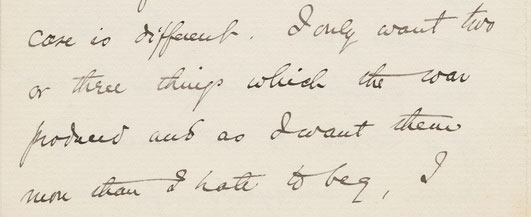 case is different. I only want two
or three things which the war
produced and as I want them
more than I hate to beg, I